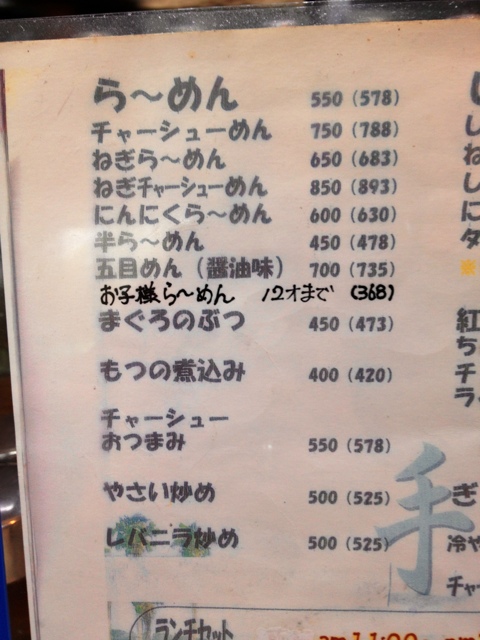 ら〜めん 550 (578)
チャーシューめん 750 (788)
ねぎら〜めん 650 (683)
ねぎチャーシューめん 850 (893)
にんにくら〜めん 600 (630)
半ら〜めん 450 (478)
五目めん (醤油味) 700 (735)
お子様ら〜めん 12才まで (368)
まぐろのぶつ 450 (473)
もつの煮込み 400 (420)
チャーシュー
おつまみ 550 (578)
やさい炒め 500 (525)
レバニラ炒め 500 (525)
ランチセット
し
ね
し
に
タ
紅
ち
チ
ラ
手
ぎ
冷や
チャ